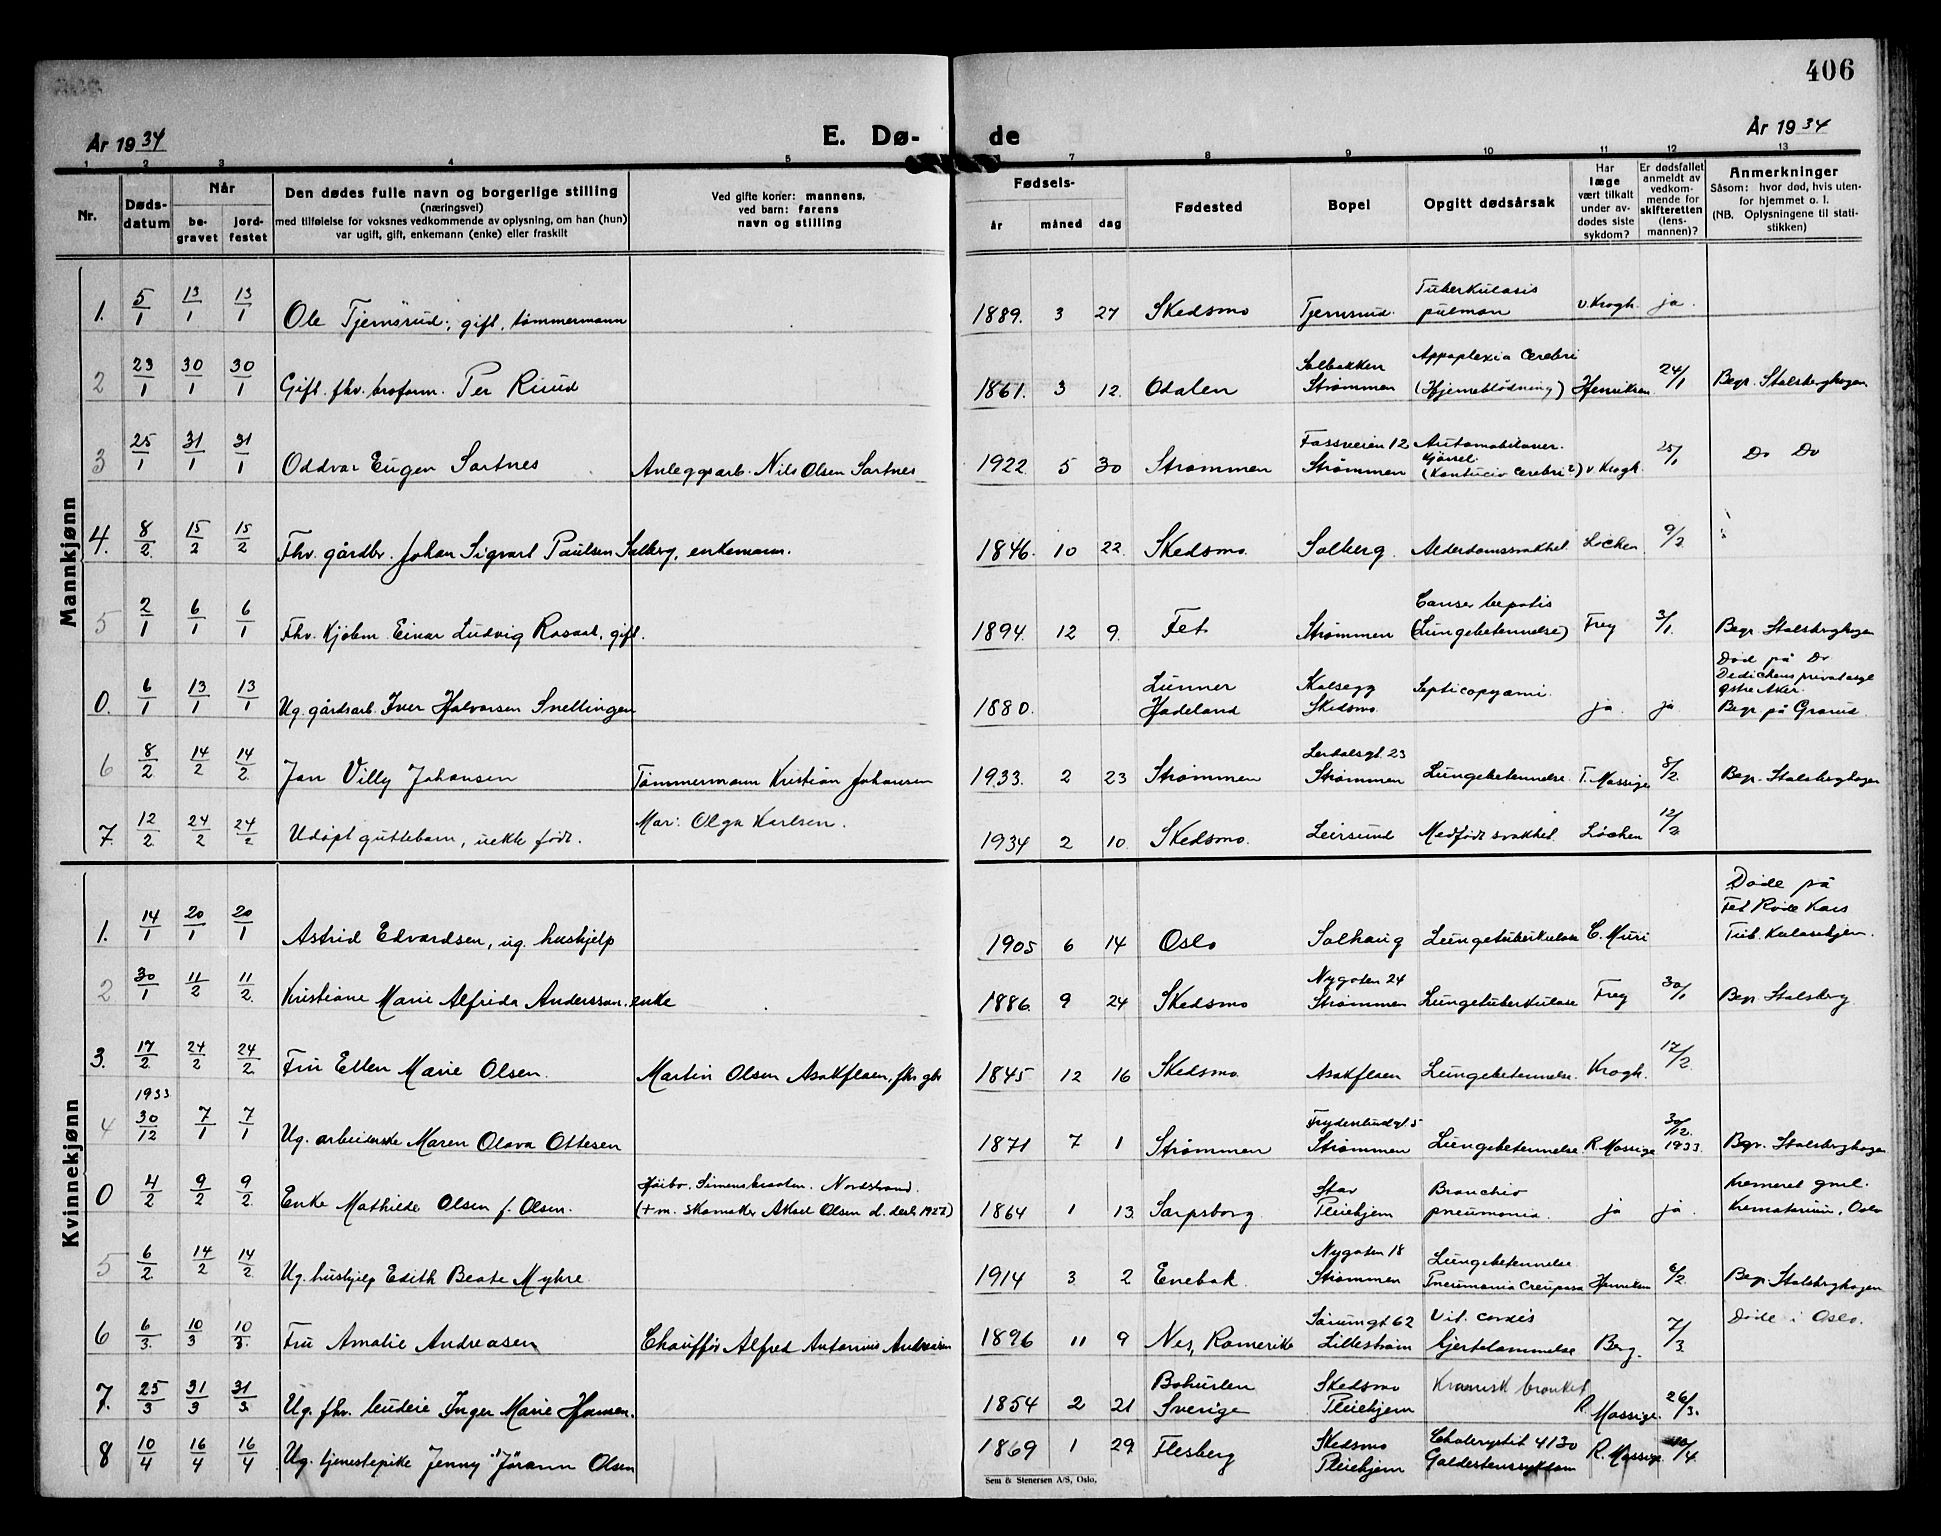 406
År 1934
E. Dø- de
År 1934
1 2 3 4 5 7 8 9 10 11 12 13
Nr.
Døds-
datum
Når
be-
gravet
jord-
festet
Den dødes fulle navn og borgerlige stilling
(næringsvei)
med tilføielse for voksnes vedkommende av oplysning, om han (hun)
var ugift, gift, enkemann (enke) eller fraskilt
Ved gifte koner: mannens,
ved barn: farens
navn og stilling
Fødsels-
år måned dag
Fødested
Bopel
Opgitt dødsårsak
Har
læge
vært tilkalt
under av-
dødes siste
sykdom?
Er dødsfallet
anmeldt av
vedkom-
mende for
skifteretten
(lens-
mannen)?
Anmerkninger
Såsom: hvor død, hvis uten-
for hjemmet o. l.
(NB. Oplysningene til stati-
stikken)
Mannkjønn
1. 5/1 13/1 13/1 Ole Tjernsrud, gift, tømmermann 1889. 3 27 Skedsmo Tjernsrud. Tuberkulosis pulmon v. Krogh. ja.
2 23/1 30/1 30/1 Gift. fhv. broform. Per Ruud 1861. 3 12. Odalen Solbakken Strømmen Appoplexia cerebri (Hjerneblødning) Henriksen 24/1 Begr. Stalsberghagen
3 25/1 31/1 31/1 Oddvar Eugen Sartnes Anleggsarb. Nils Olsen Sartnes 1922 5 30 Strømmen Fossveien 12 Strømmen Automobiloverkjørsel. (Kontucio cerebri?) v Krogh. 25/1 Do Do
4. 8/2 15/2 15/2 Fhv. gårdbr. Johan Sigvart Paulsen Solberg, enkemann. 1846. 10 22. Skedsmo. Solberg. Alderdomssvakhet Løchen 9/2
5 2/1 6/1 6/1 Fhv. kjøbm. Einar Ludvig Rosaat, gift. 1894. 12 9. Fet Strømmen Canser hepatis (Lungebetennelse) Frey 3/1. Begr. Stalsberghagen
0. 6/1 13/1 13/1 Ug. gårdsarb. Iver Halvorsen Snellingen 1880. Lunner Hadeland Skalsegg Skedsmo. Septicopyami. ja. ja Død på Dr Dedichens privatasyl Østre Aker. Begr. på Grorud.
6 8/2 14/2 14/2 Jan Villy Johansen Tømmermann Kristian Johansen 1933. 2 23 Strømmen Lerdalsgt. 23 Strømmen Lungebetennelse. T. Mossige 8/2. Begr. Stalsberghagen
7. 12/2 24/2 24/2 Udøpt guttebarn, uekte født. Mor: Olga Karlsen. 1934 2 10. Skedsmo. Leirsund Medfødt svakhet Løchen 12/2
Kvinnekjønn
1. 14/1 20/1 20/1 Astrid Edvardsen, ug. hushjelp 1905 6 14 Oslo Solhaug Lungetuberkulose C. Muri Døde på Fet Røde Kors Tub. kulosehjem.
2 30/1 11/2 11/2 Kristiane Marie Alfrida Anderssen, enke 1886. 9 24 Skedsmo Nygaten 24 Strømmen Lungetuberkulose Frey 30/1 Begr. Stalsberg
3. 17/2. 24/2 24/2. Fru Ellen Marie Olsen. Martin Olsen Asakflaen, fhv gbr 1845 12 16 Skedsmo. Asakflaen Lungebetennelse. Krogh. 17/2.
4 1933 30/12 7/1 7/1 Ug. arbeiderske Maren Olava Ottesen 1871 7 1 Strømmen Frydenlundgt 5 Strømmen Lungebetennelse R. Mossige 30/12. 1933. Begr. Stalsberghagen
0 4/2 9/2 9/2 Enke Mathilde Olsen f. Olsen. Høibo, Simensbraaten. Nordstrand. (+ m. skomaker Aksel Olsen d. des. 1927) 1864 1 13. Sarpsborg. Stav Pleiehjem Bronchio pneumonia. ja ja. Kremeret gml. Krematorium, Oslo
5 6/2 14/2 14/2 Ug. hushjelp Edith Beate Myhre. 1914 3 2 Enebak. Nygaten 18 Strømmen Lungebetennelse Pneumonia Creuposa Henriksen 6/2. Begr. Stalsberghagen
6 6/3. 10/3 10/3. Fru Amalie Andreasen Chauffør Alfred Antonius Andreasen 1896 11 9 Nes, Romerike Sørumgt 62 Lillestrøm Vit. cordis Hjertelammelse Berg. 7/3. Døde i Oslo.
7. 25/3 31/3 31/3. Ug. fhv. budeie Inger Marie Hansen. 1854 2 21 Bohuslen Sverige Skedsmo Pleiehjem Kronisk bronkit R. Mossige. 26/3.
8 10/4 16/4 16/4 Ug. tjenestepike Jenny "Jørann Olsen 1869 1 29. Flesberg Skedsmo Pleiehjem Cholecystit 4130 Galdestenssykdom R. Mossige 10/4
Sem & Stenersen A/S, Oslo.